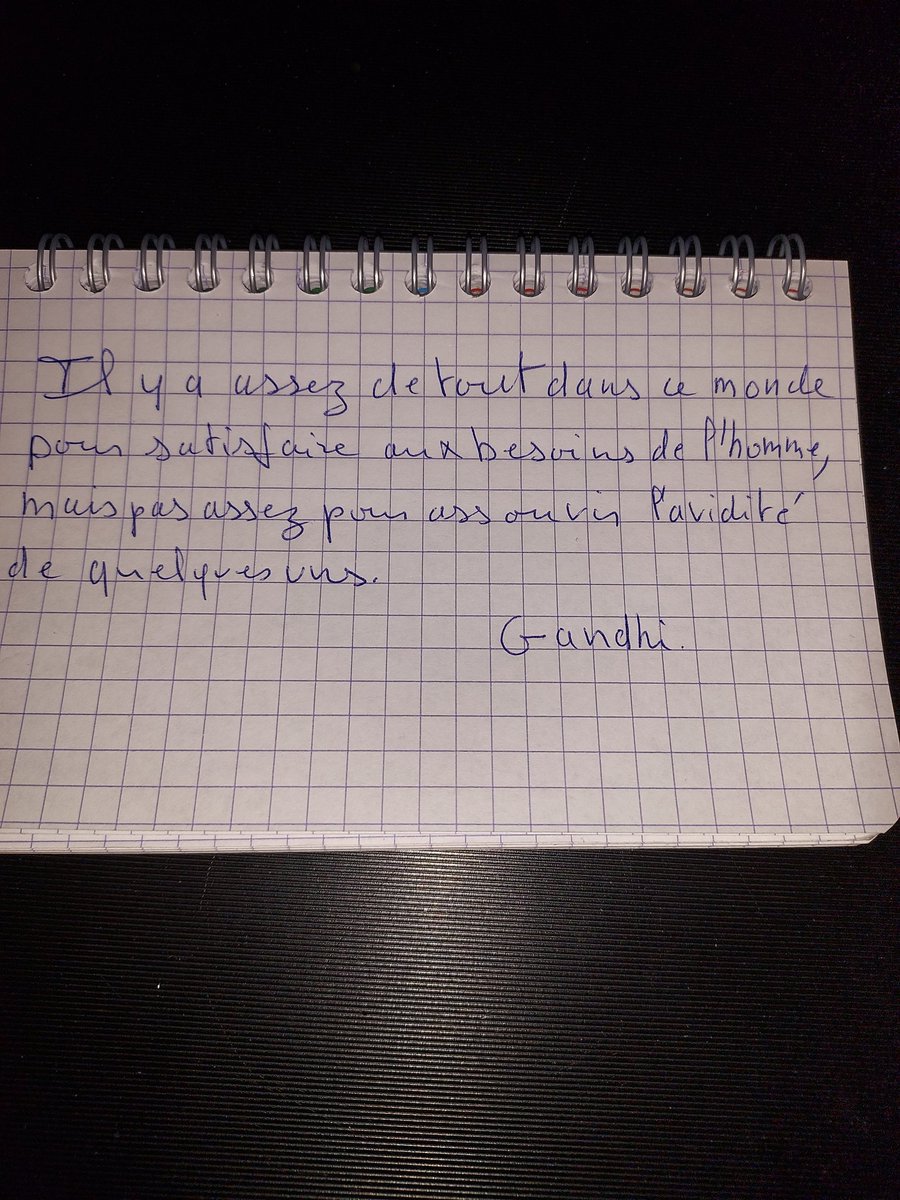 Il y a assez de tout dans ce monde
pour satisfaire aux besoins de l'homme,
mais pas assez pour assouvir l'avidité
de quelques uns.
Gandhi.